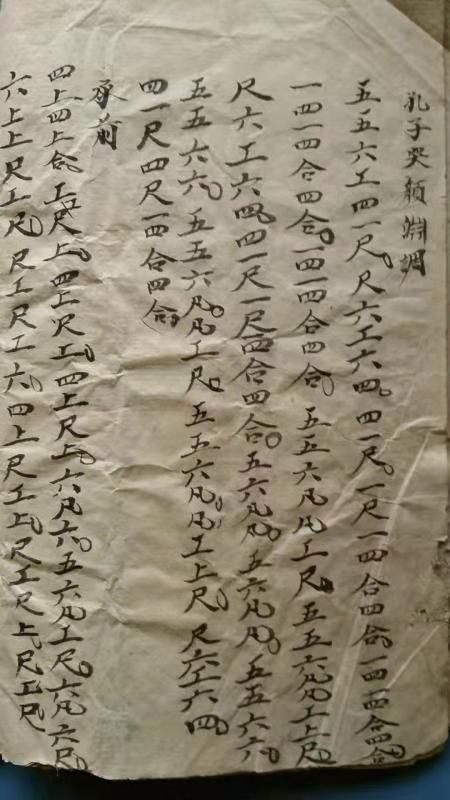 孔子哭顏淵調
五五六工四一尺。尺六工六四。四一尺。一尺一四合四合。一四一四合四合。
一四一四合四合。一四一四合四合。五五六凡凡工尺。五五六凡凡工上尺。
尺六工六四。四一尺一尺一四合四合。五六凡凡。五六凡凡。五五六六。
五五六六。五五六凡。凡工尺。五五六凡凡。工上尺。尺六工六四
四一尺四尺一四合四合。
承前
四上四上合。工尺上。四上尺工。四上尺上。六凡六。五六凡工尺。六凡六尺。
六上上尺工尺。尺工尺工六。四上尺工上。尺工尺上。尺工尺